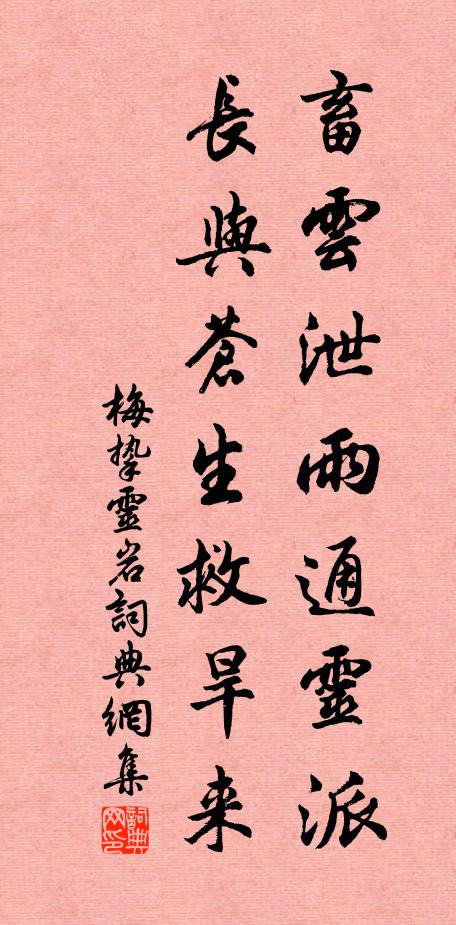 畜雲泄雨通靈派
長與蒼生救旱来
梅摯靈岩詞典網集
詞典网印